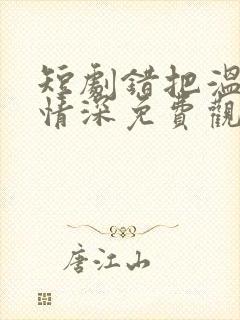 短劇錯把溫
情深免費觀
唐江山